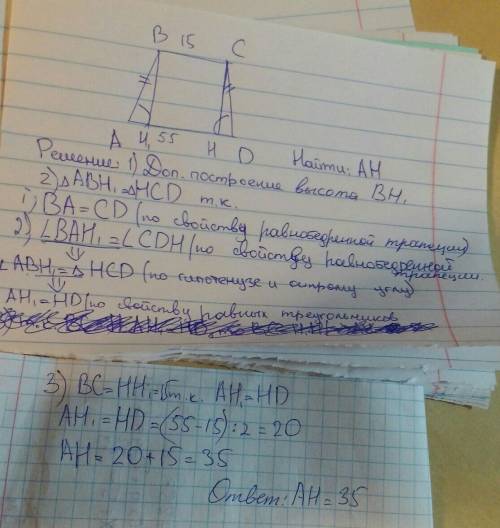 B 15 C
A H₁ 55 H D
Найти: AH
Решение: 1) Доп. построение высота BH₁
2) △ABH₁ = △HCD т.к.
1) BA = CD (по свойству равнобедренной трапеции)
2) ∠BAH₁ = ∠CDH (по свойству равнобедренной
трапеции
⇓
∠ABH₁ = △HCD (по гипотенузе и острому углу)
⇓
AH₁ = HD (по свойству равных треугольников
3) BC = HH₁ = 15 т.к. AH₁ = HD
AH₁ = HD = (55-15):2 = 20
AH = 20 + 15 = 35
Ответ: AH = 35